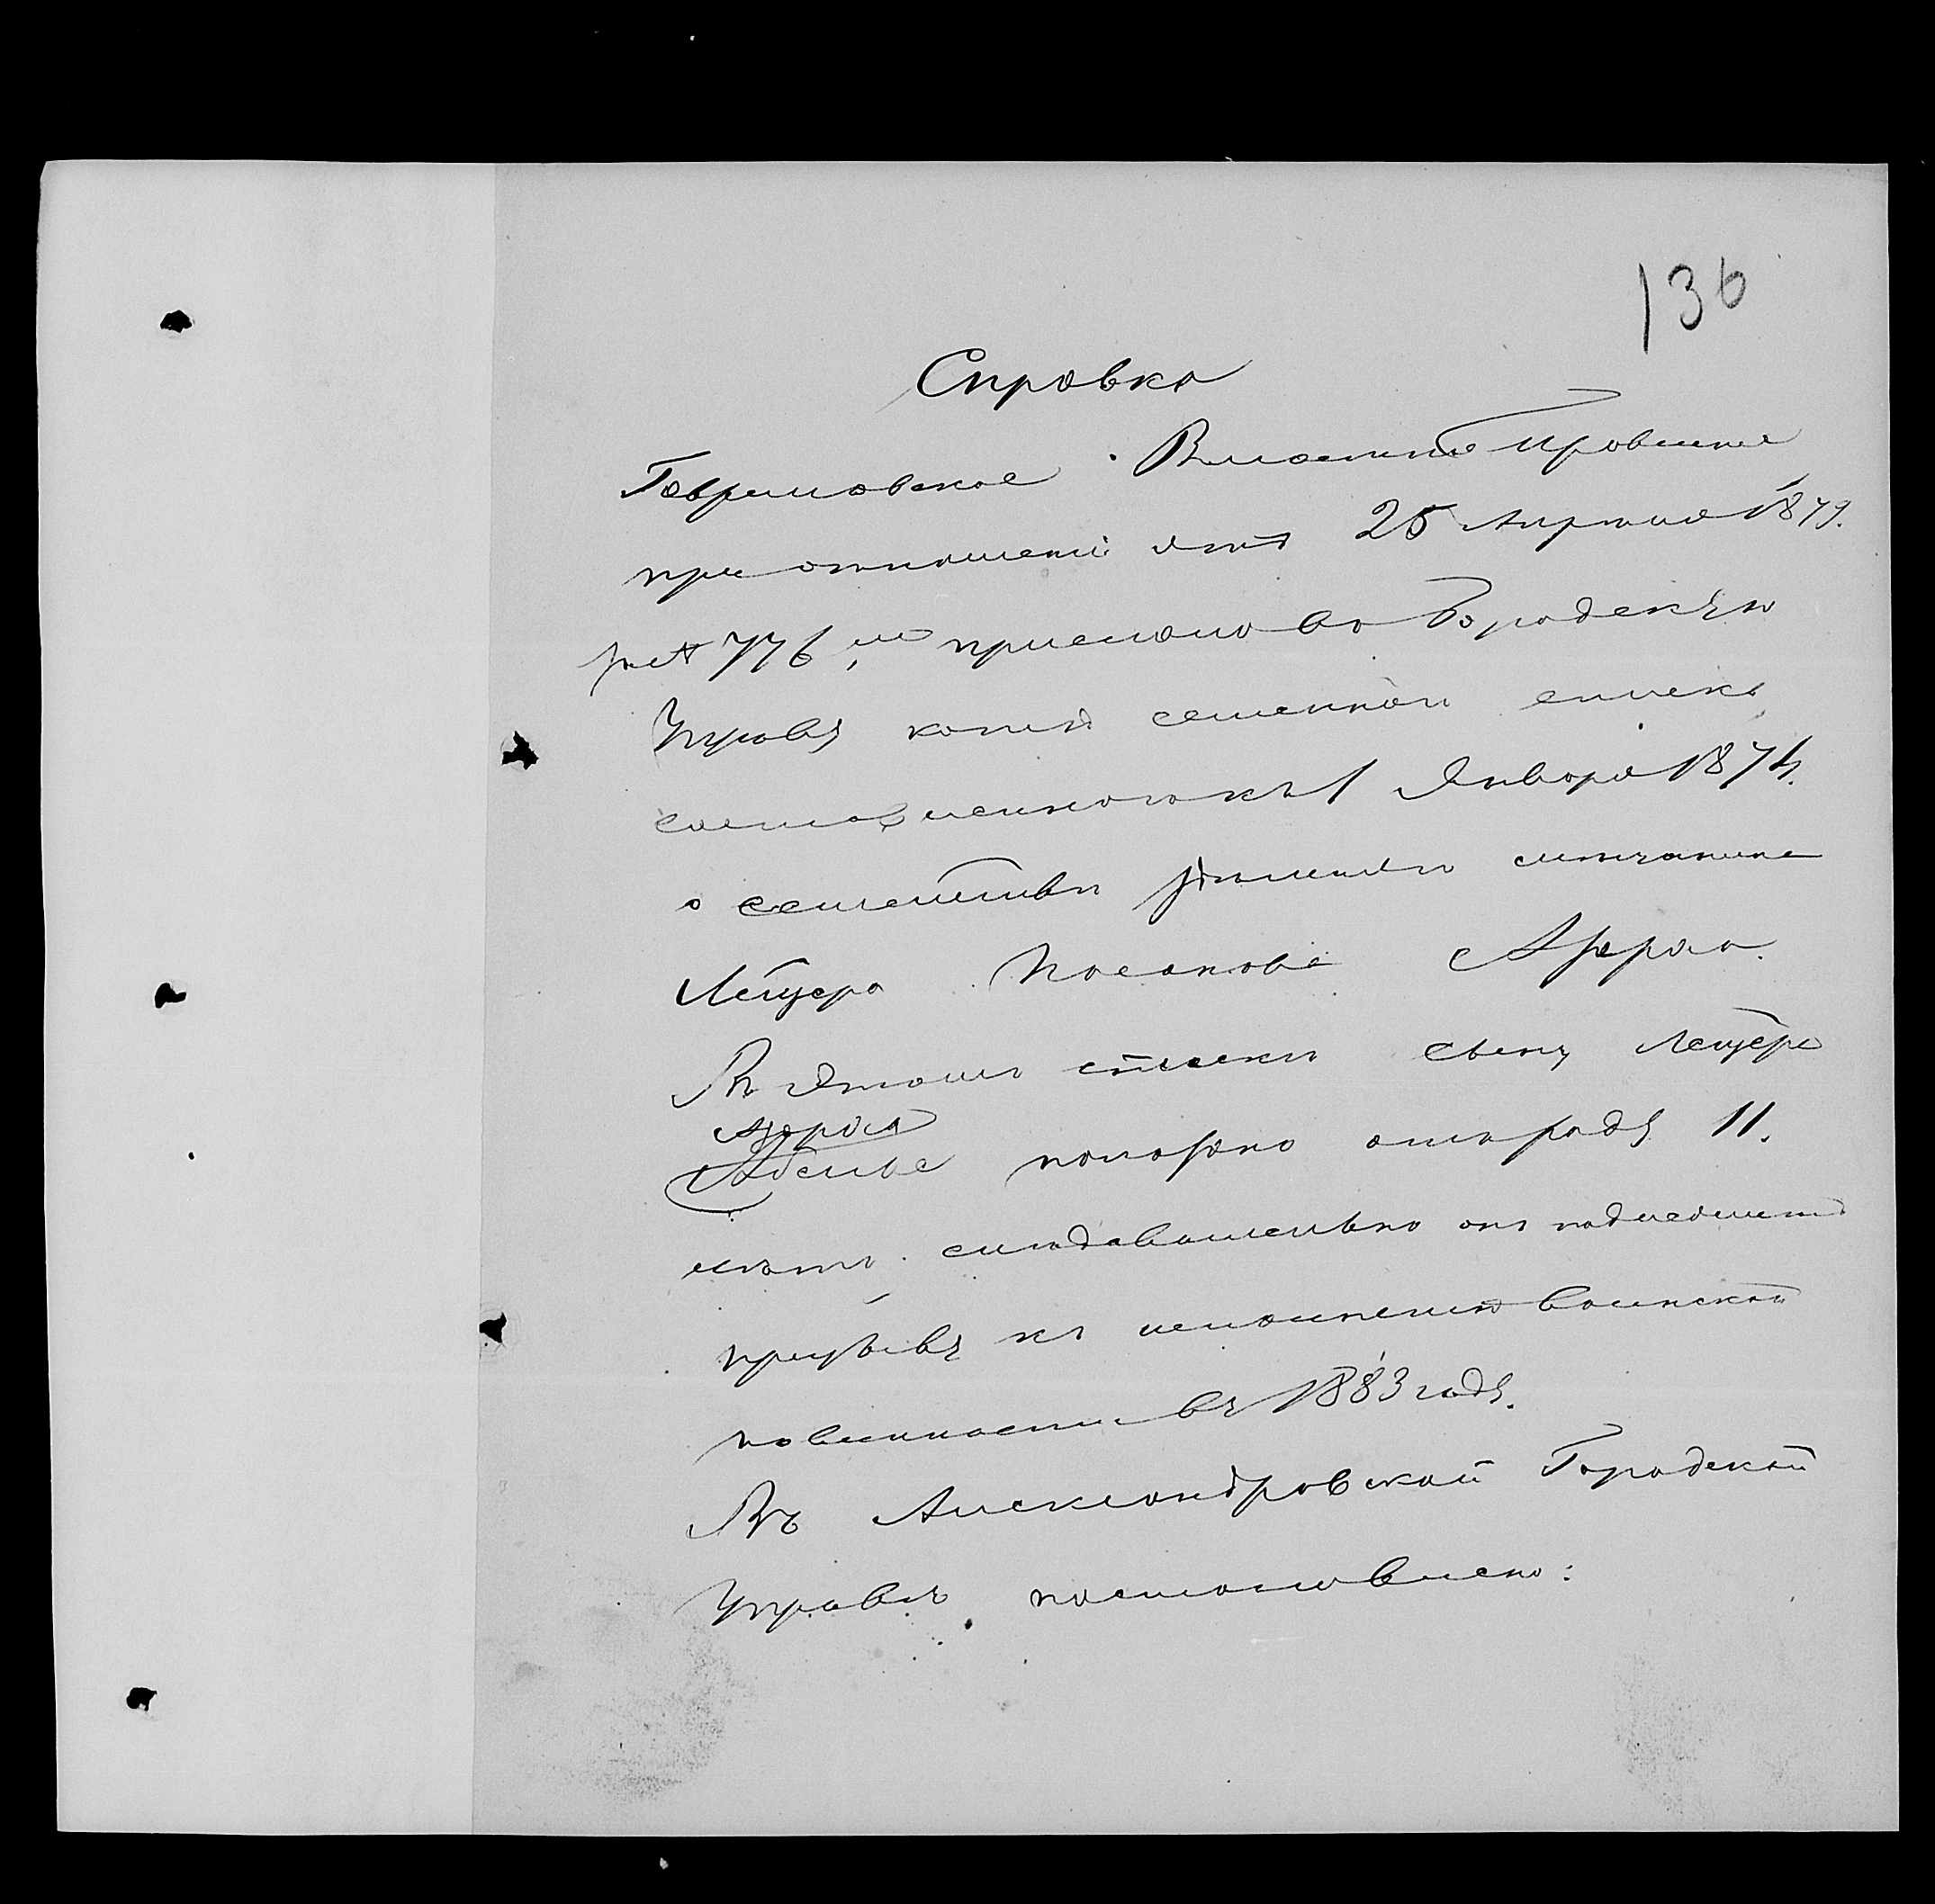 136
Справка
Гавриловское Волостное Правление
при отношеніи отъ 25 Апреля 1879.
за № 776, прислало въ Городскую
Управу копію семейной списка
составленного къ 1 Января 1874.
о семействе мещанина
Лейзера Носанова
Въ этомъ списке сыну Лейзера
показано отъ роду 11.
летъ. следовательно онъ подлежитъ
призыву къ исполненію воинской
повинности въ 1883 году.
Въ Александровской Городской
Управе постановлено: